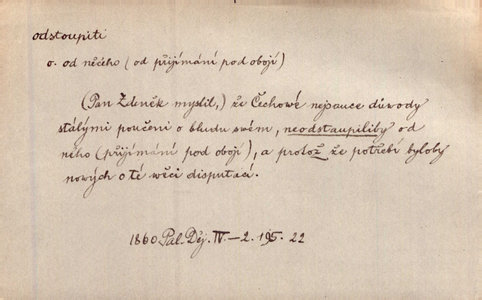 odstoupiti
o. od něčeho (od přijímání pod obojí)
(Pan Zdeněk myslil,) že Čechowé nejsauce důwody
stálými poučeni o bludu swém, neodstaupiliby od
něho (přijímání pod obojí), a protož že potřebí byloby
nowých o té wěci disputací.
1860 Pal. Děj. IV—2. 195. 22